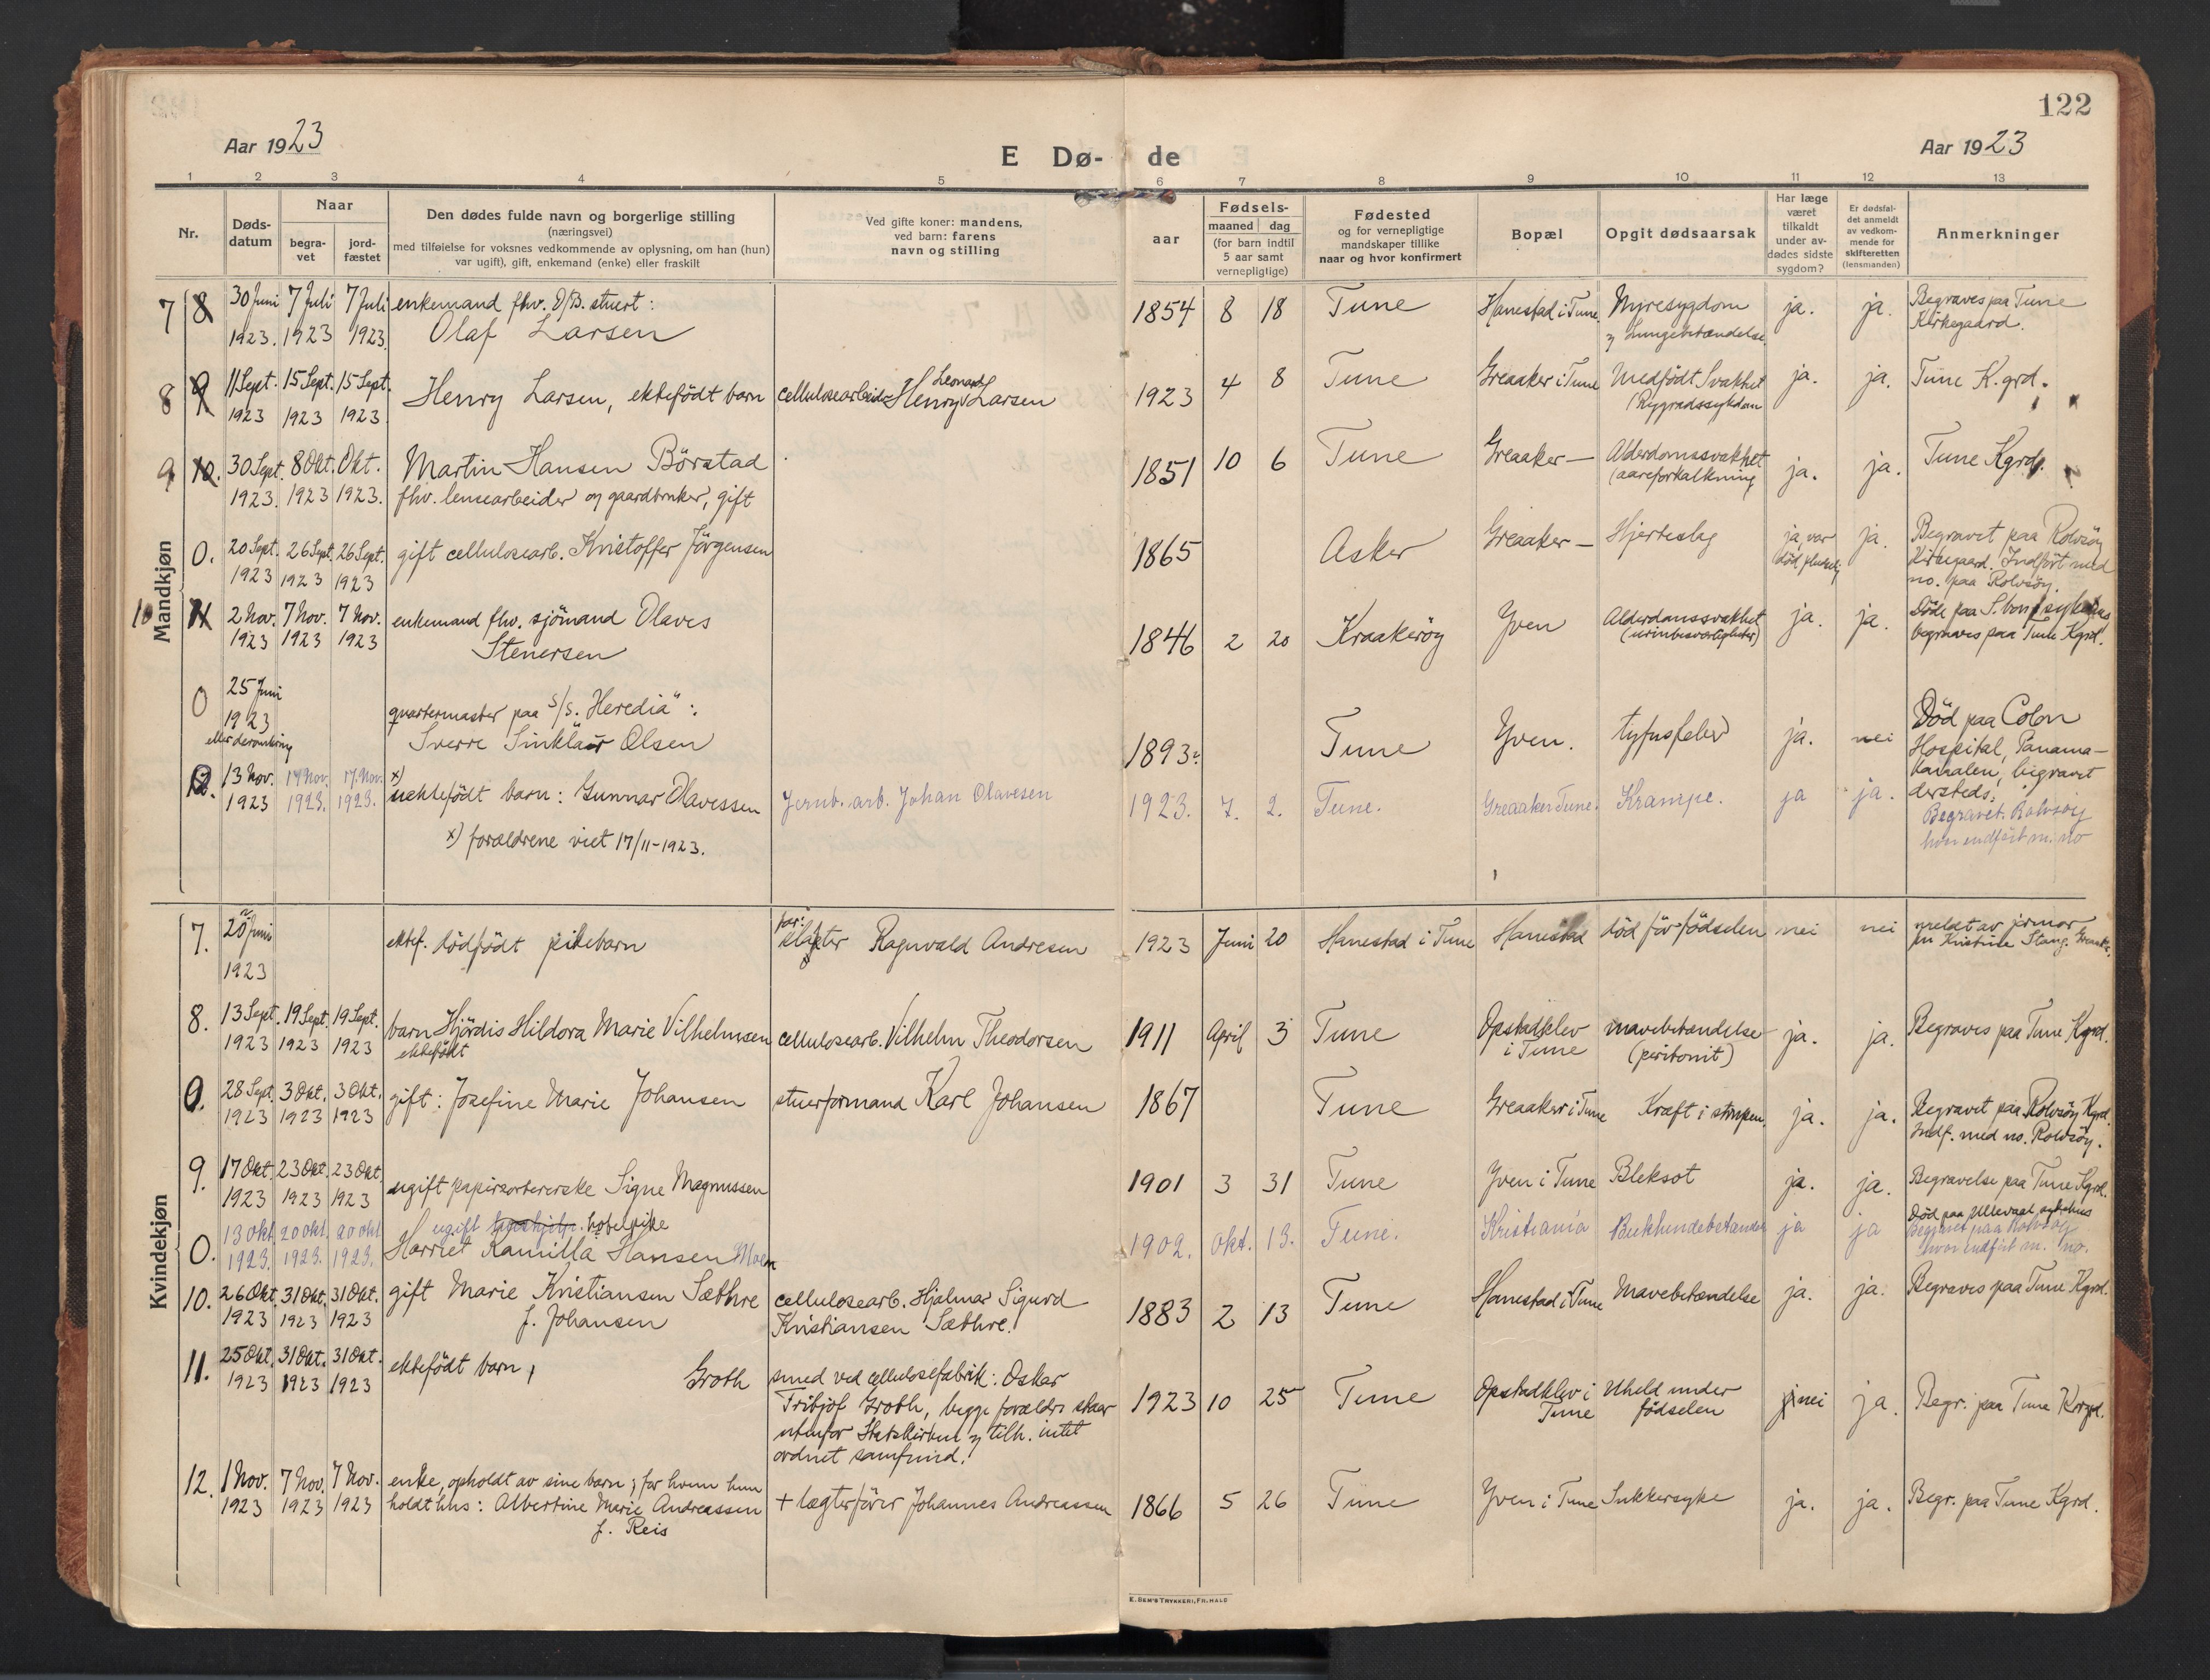 122
Aar 1923
E Dø- de
Aar 1923
1 2 3 4 5 6 7 8 9 10 11 12 13
Nr.
Døds-
datum
Naar
begra-
vet
jord-
fæstet
Den dødes fulde navn og borgerlige stilling
(næringsvei)
med tilføielse for voksnes vedkommende av oplysning, om han (hun)
var ugift), gift, enkemand (enke) eller fraskilt
Ved gifte koner: mandens,
ved barn: farens
navn og stilling
aar
Fødsels-
maaned dag
(for barn indtil
5 aar samt
vernepligtige)
Fødested
og for vernepligtige
mandskaper tillike
naar og hvor konfirmert
Bopæl
Opgit dødsaarsak
Har læge
været
tilkaldt
under av-
dødes sidste
sygdom?
Er dødsfal-
det anmeldt
av vedkom-
mende for
skifteretten
(lensmanden)
Anmerkninger
Mandkjøn
7 8 30 Juni 7 Juli 7 Juli enkemand fhv. D/B. stuert: 1854 8 18 Tune Hanestad i Tune Nyresygdom ja. ja. Begraves paa Tune
1923. 1923 1923. Olaf Larsen og Lungebetændelse. Kirkegaard.
8 9 11 Sept. 15 Sept. 15 Sept. Henry Larsen, ektefödt barn cellulosearbeider Henry Leonard Larsen 1923 4 8 Tune Greaaker i Tune Medfödt Svakhet ja. ja. Tune K.grd.
1923 1923 1923 (Rygradssykdom
9 10. 30 Sept. 8 Okt. Okt. Martin Hansen Börstad 1851 10 6 Tune Greaaker — Alderdomssvakhet ja. ja. Tune Kgrd.
1923. 1923 1923. fhv. lensearbeider og gaardbruker, gift (aareforkalkning
0. 20 Sept. 26 Sept. 26 Sept. gift cellulosearb. Kristoffer Jörgensen 1865 Asker Greaaker — Hjerteslag ja, var ja. Begravet paa Rolvsöy
1923 1923 1923 död pludselig Kirkegaard. Indfört med
no. paa Rolvsöy.
10 11 2 Nov. 7 Nov. 7 Nov. enkemand fhv. sjömand Olaves 1846 2 20 Kraakeröy Yven Alderdomssvakhet ja. ja. Döde paa S.borg sykehus
1923 1923 1923 Stenersen (urinbesværligheter) begraves paa Tune Kgrd.
0 25 Juni quartermaster paa S/S. "Heredia": 1893? Tune Yven. tyfusfeber ja. nei Död paa Colon
1923 Sverre Sinklair Olsen Hospital, Panama-
eller deromkring Kanalen, begravet
dersteds.
13 Nov. 17 Nov. 17. Nov. x) uektefödt barn: Gunnar Olavessen Jernb. arb. Johan Olavesen 1923. 7. 2. Tune. Greaaker Tune. Krampe. ja ja. Begravet. Rolvsöy
1923 1923. 1923. hvor indfört m. no
x) forældrene viet 17/11-1923.
Kvindekjøn
7. 20 Juni ektef. dödfödt pikebarn far: Ragnvald Andresen 1923 Juni 20 Hanestad i Tune Hanestad död för födselen nei nei meldt av jormor
1923 fru Kristine Stang. Greaaker.
8. 13 Sept. 19 Sept. 19 Sept. barn Hjördis Hildora Marie Vilhelmsen cellulosearb. Vilhelm Theodorsen 1911 April 3 Tune Opstadklev mavebetændelse ja. ja. Begraves paa Tune Kgrd.
1923 1923 1923 ektefödt i Tune (peritonit)
0. 28 Sept. 3 Okt. 3 Okt. gift: Josefine Marie Johansen stuerformand Karl Johansen 1867 Tune Greaaker i Tune Kræft i strupen. ja. ja. Begravet paa Rolvsöy Kgrd.
1923 1923 1923 Indf. med no. Rolvsöy.
9. 17 Okt. 23 Okt. 23 Okt. ugift papirsortererske Signe Magnussen 1901 3 31 Tune Yven i Tune Bleksot ja. ja. Begravelse paa Tune Kgrd.
1923 1923 1923
0. 13 Okt. 20 Okt. 20 Okt ugift hotelpike 1902. Okt. 13. Tune. Kristiania Bukhindebetændelse ja ja Död paa Ullevaal sykehus
1923. 1923. 1923. Harriet Kamilla Hansen Moen Begravet paa Rolvsöy
hvor indfört m. no.
10. 26 Okt. 31 Okt. 31 Okt. gift Marie Kristiansen Sæthre cellulosearb. Hjalmar Sigurd 1883 2 13 Tune Hanestad i Tune Mavebetændelse ja. ja. Begraves paa Tune Kgrd.
1923 1923 1923 f. Johansen Kristiansen Sæthre.
11. 25 Okt. 31 Okt. 31 Okt. ektefödt barn, Groth smed ved cellulosefabrik: Oskar 1923 10 25 Tune Opstadklev i Uheld under nei ja. Begr. paa Tune Krgrd.
1923 1923 1923 Fritjof Groth, begge forældre staar Tune födselen
utenfor Statskirken og tilh. intet
ordnet samfund.
12. 1 Nov. 7 Nov. 7 Nov. enke, opholdt av sine barn, for hvem hun + lægterförer Johannes Andreassen 1866 5 26 Tune Yven i Tune Sukkersyke ja. ja. Begr. paa Tune Kgrd.
1923 1923 1923 holdt hus: Albertine Marie Andreassen
f. Reis
E. SEM'S TRYKKERI, FR.HALD